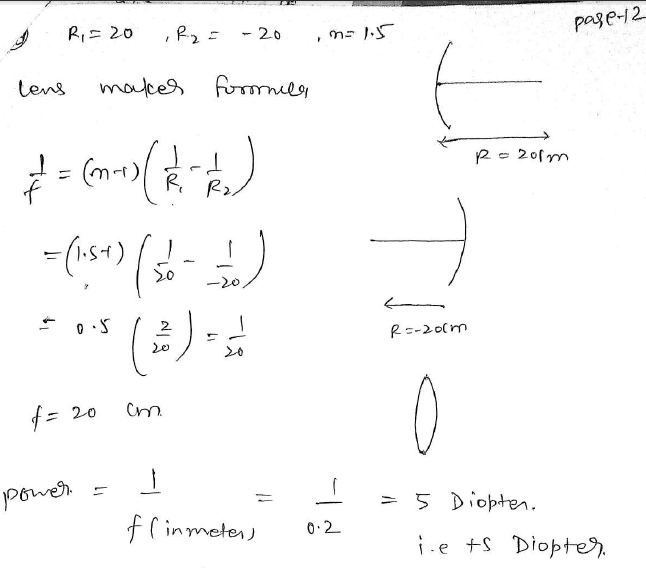 page-12
R₁ = 20 , R₂ = - 20 , n = 1.5
lens maker formula
R = 20cm
1/f = (n-1) (1/R₁ - 1/R₂)
= (1.5-1) (1/20 - 1/-20)
R = -20cm
= 0.5 (2/20) = 1/20
f = 20 cm
power = 1/f (in meter) = 1/0.2 = 5 Diopter.
i.e +5 Diopter.